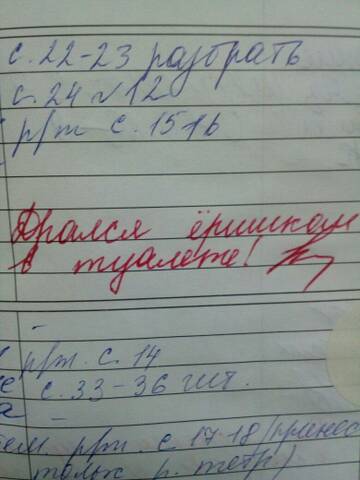 с. 22-23 разобрать
с. 24 № 12
р/т с. 15 1б
Дрался ёршиком
в туалете!
-
р/т. с. 14
с. 33-36 чит.
-
р/т. с 17-18 (принес
только р. тетр)